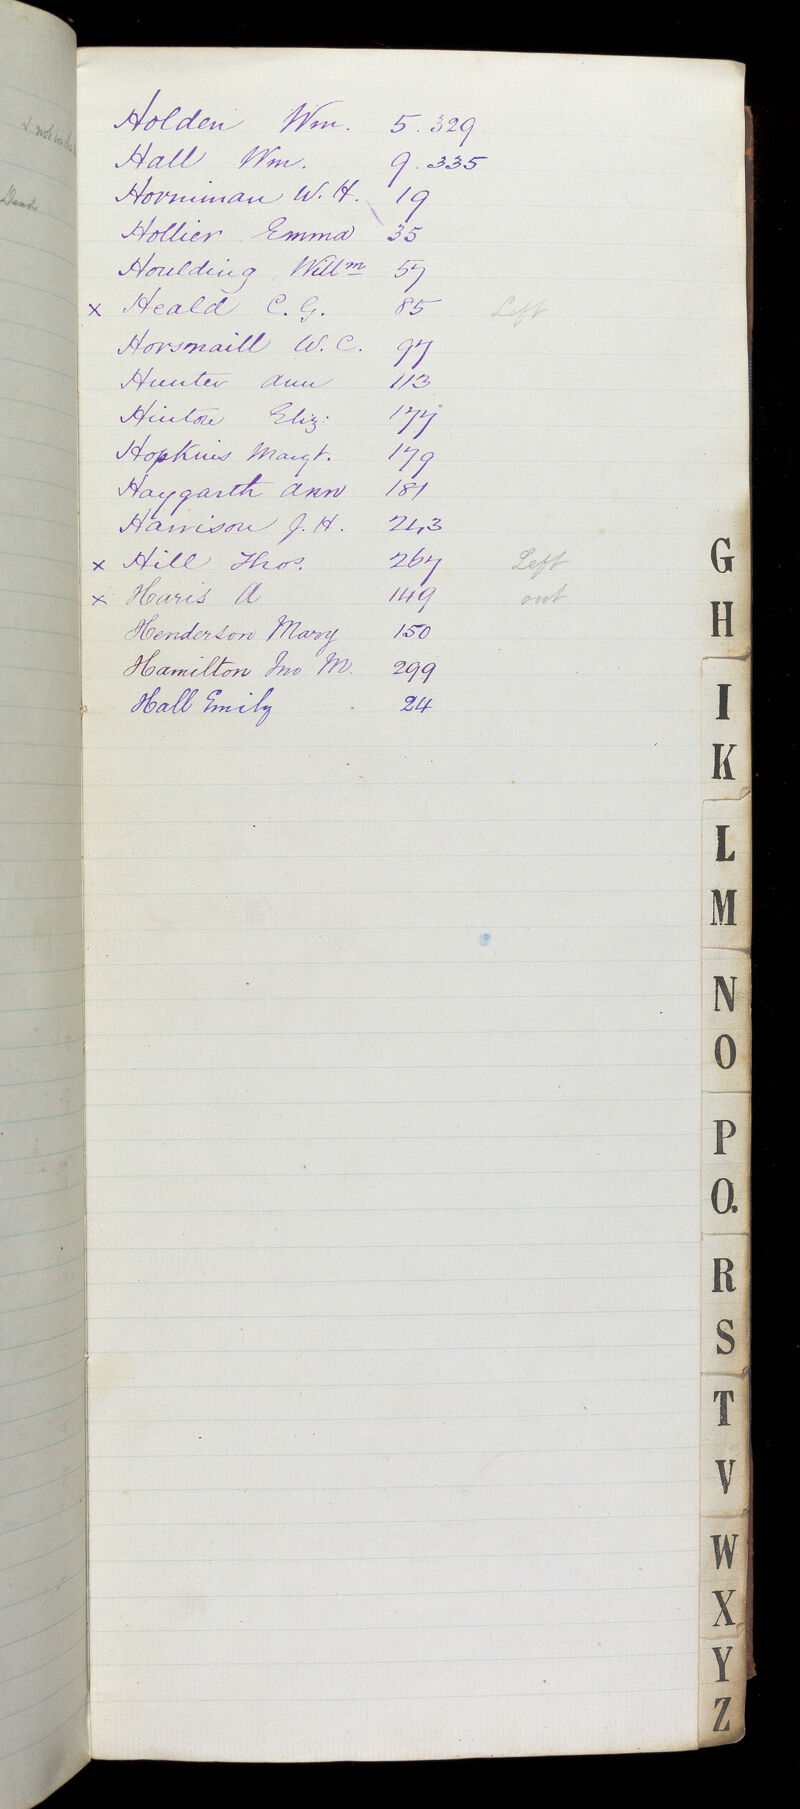 Holden Wm. 5. 329
Hall Wm. 9. 335
Horniman W. H. 19
Hollier Emma 35
Houlding Willm 57
x Heald C. G. 85 Left
Horsnaill W. C. 97
Hunter Ann 113
Hinton Eliz: 177
Hopkins Margt. 179
Haygarth Ann 181
Harrison J. H. 243
x Hill Thos. 267 Left
x Haris A 149 out
Henderson Mary 150
Hamilton Jno M. 299
Hall Emily 24
Dead
G
H
I
K
L
M
N
O
P
Q.
R
S
T
V
W
X
Y
Z